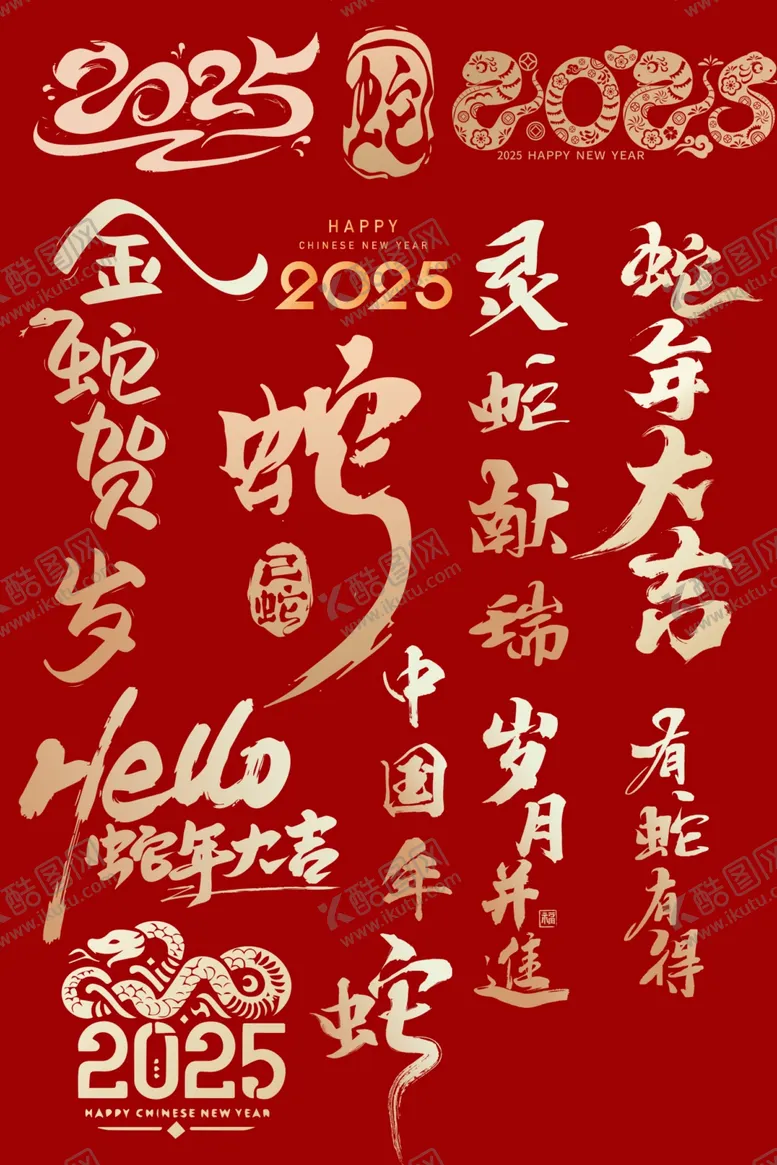 2025
蛇
2025
2025 HAPPY NEW YEAR
金蛇贺岁
HAPPY
CHINESE NEW YEAR
2025
蛇
己蛇
灵蛇献瑞
蛇年大吉
Hello
蛇年大吉
中国年
岁月并進
福
有蛇有得
2025
HAPPY CHINESE NEW YEAR
蛇
酷图网
www.ikutu.com